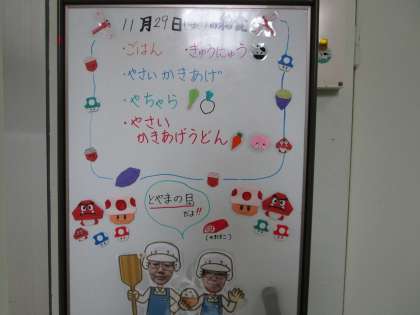 11月29日
・ごはん ・ぎゅうにゅう
・やさいかきあげ
・やちゃら
・やさい
かきあげうどん
とやまの日
だよ!!